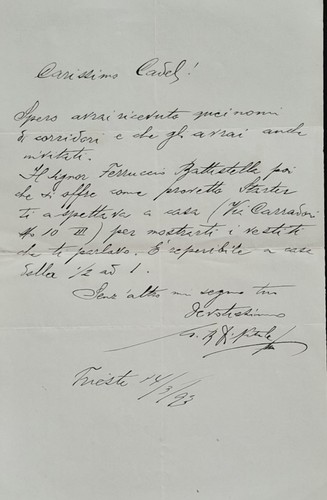 Carissimo Cadel!
Spero avrai ricevuto quei nomi
di corridori e che gli avrai anche
invitati.
Il signor Ferruccio Battistella poi
che si offre come provetto Starter
ti aspettava a casa (Via
No 10 III) per mostrarti i vestiti
che ti parlavo. È reperibile a casa
dalla 1/2 ad 1.
Senz'altro mi segno tuo
devotissimo
Trieste 14/3/93